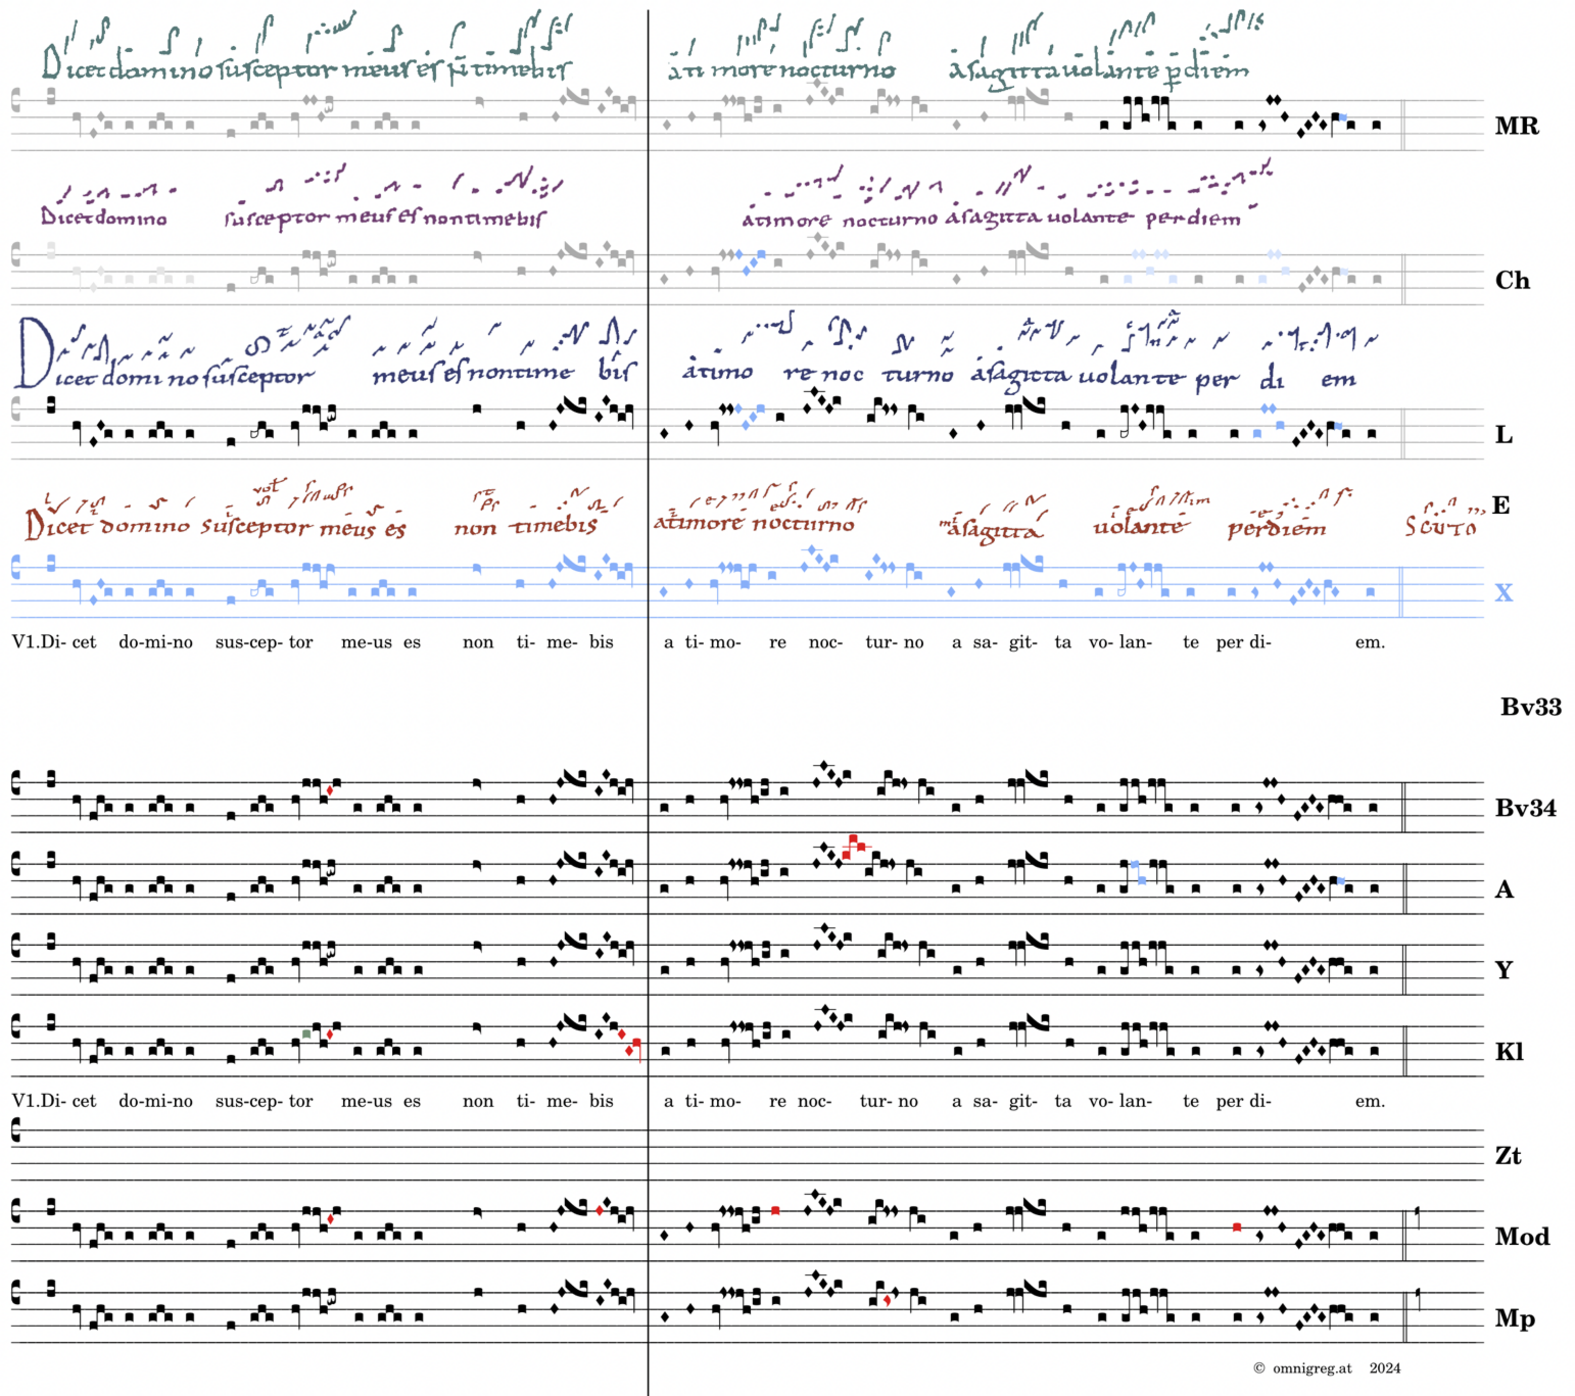 Dicet domino susceptor meus es timebis atimore nocturno asagitta uolante diem
MR
Dicet domino susceptor meus es non timebis atimore nocturno asagitta uolante per diem
Ch
Dicet domino susceptor meus es non timebis atimore nocturno asagitta uolante per diem
L
Dicet domino susceptor meus es non timebis atimore nocturno asagitta uolante perdiem Scuto
E
X
V1.Di- cet do-mi-no sus-cep- tor me-us es non ti- me- bis a ti- mo- re noc- tur- no a sa- git- ta vo- lan- te per di- em.
Bv33
Bv34
A
Y
Kl
V1.Di- cet do-mi-no sus-cep- tor me-us es non ti- me- bis a ti- mo- re noc- tur- no a sa- git- ta vo- lan- te per di- em.
Zt
Mod
Mp
© omnigreg.at 2024